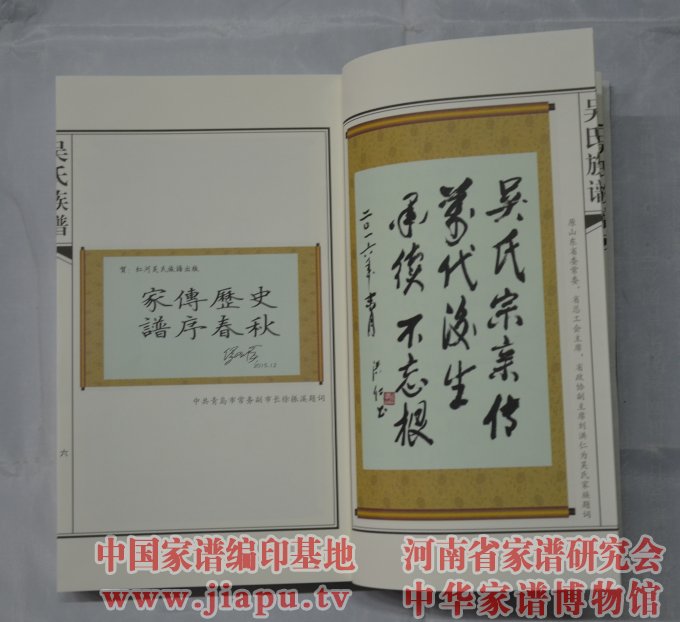 吴氏族谱
賀：红河吴氏族譜出版
家傳歷史
譜序春秋
2015.12
中共青岛市常务副市长徐振溪题词
六
吴氏宗亲传
萬代後生
承續不忘根
二〇一六年
洪仁书
吴氏族谱
原山东省委常委，省总工会主席，省政协副主席刘洪仁为吴氏家族题词
中国家谱编印基地
河南省家谱研究会
www.jiapu.tv
中华家谱博物馆